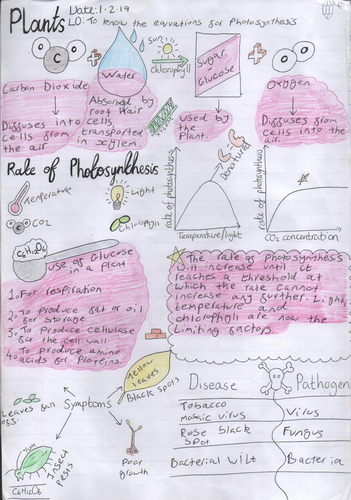 Plants
Date: 1.2.19
LO: To know the equations for Photosynthesis
C
Water
sun
chlorophyll
Sugar
Glucose
Carbon Dioxide
Diffuses into
cells from
the air
Absorbed by
root Hair
cells
transported
in xylem.
Used by
the Plant.
Oxygen
Diffuses from
cells into the
air.
Denatured
Rate of Photosynthesis
Temperature
Light
CO2
Chlorophyll
rate of photosynthesis
Temperature/light
rate of photosynthesis
CO2 concentration
C6H12O6
use of Glucose
in a Plant
1. For respiration
2. To Produce fat or oil
for storage
3. To Produce cellulase
for the cell wall
4. To produce amino
acids for Proteins.
The rate of Photosynthesis
will increase until it
reaches a threshold at
which the rate cannot
increase any further. Light,
temperature and
chlorophyll are now the
limiting factors.
Yellow
leaves
Black spots
Leaves fall
Symptoms
Insect
pests
Poor
growth
C6H12O6
Disease
Pathogen
Tobacco
mosaic virus
Virus
Rose black
spot
Fungus
Bacterial wilt
Bacteria